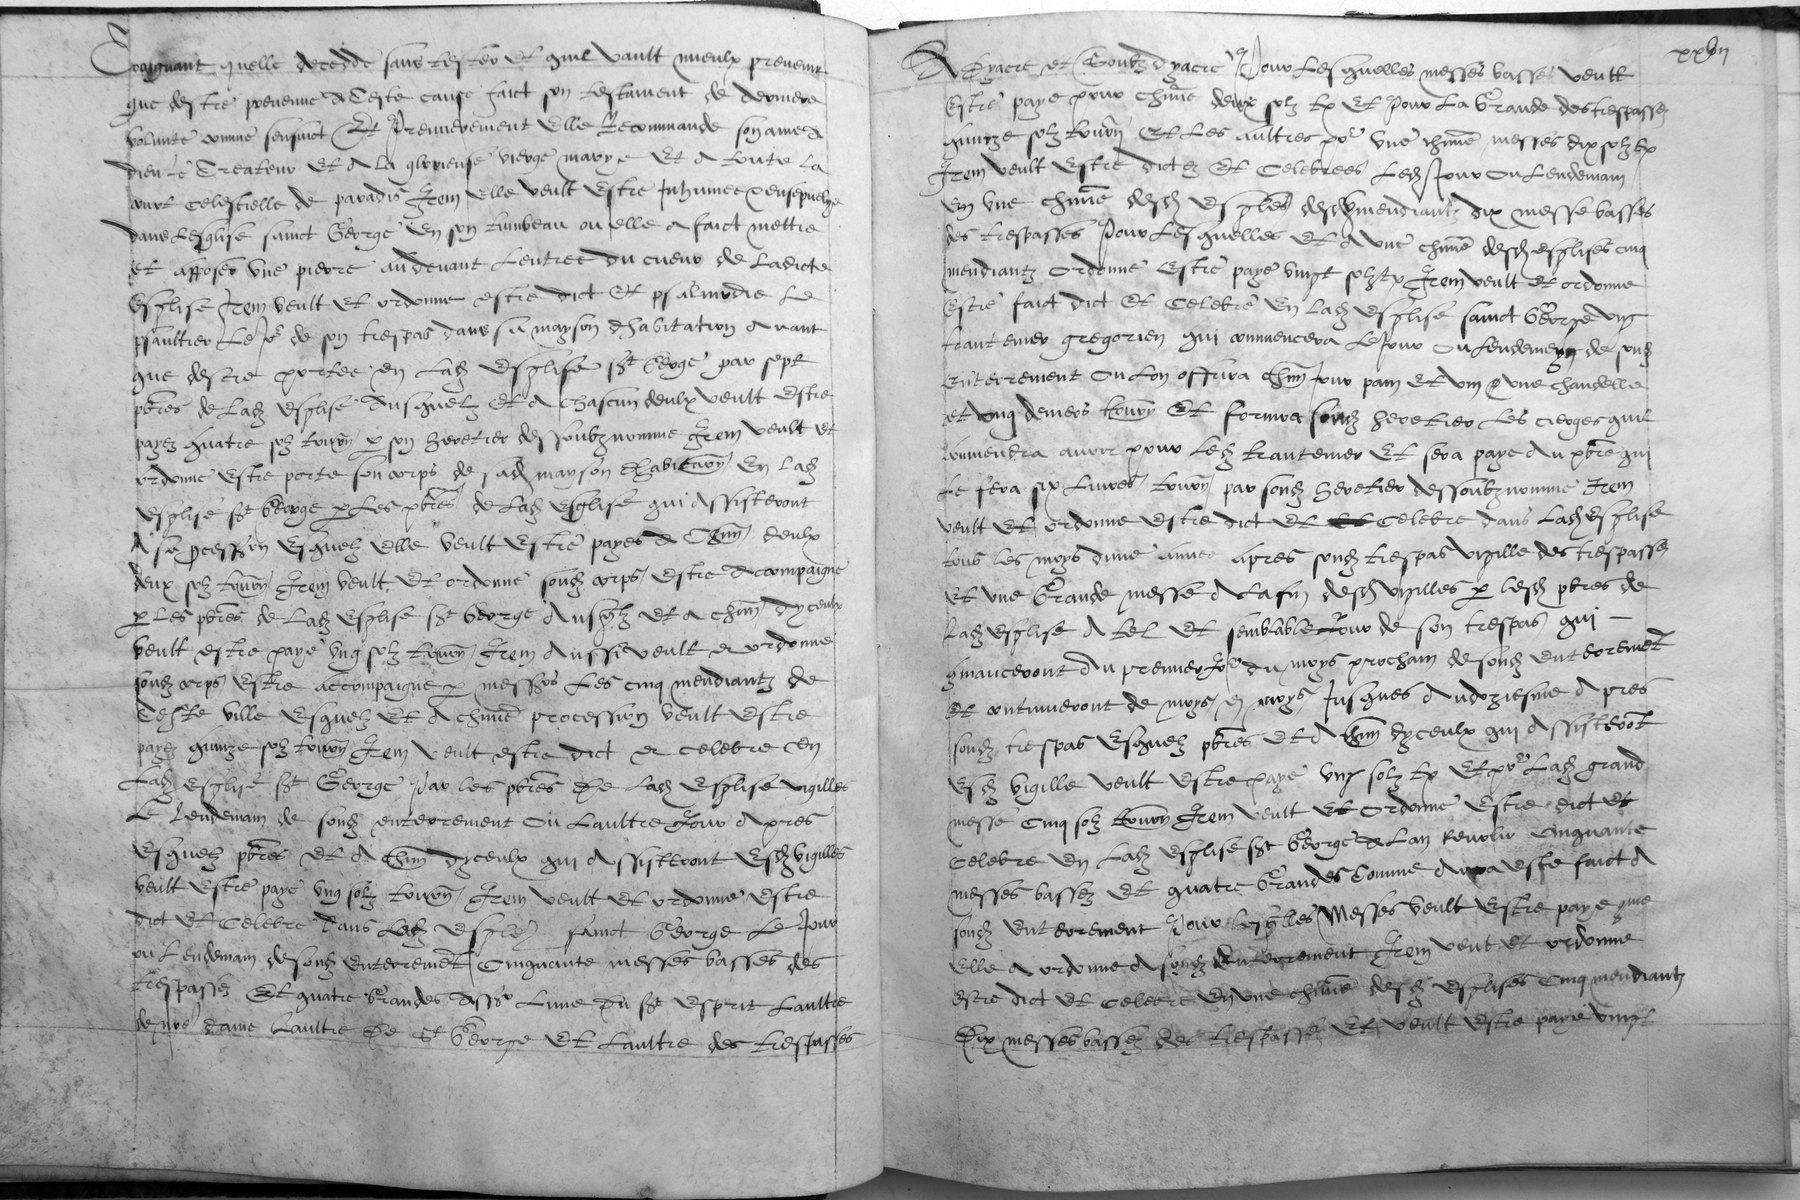 Craignant quelle decedde sans tester et quil vault mieulx prevenir
que destre prevenue A Ceste cause faict son testament de derniere
volunte comme sensuict Et Premierement Elle Recommande son ame a
dieu le Createur et a la glorieuse vierge marye Et a toute la
court Celestielle de paradis Item Elle veult Estre Inhumee & ensepvelye
dans Lesglise sainct George En son tumbeau ou elle a faict mettre
et apposer Une pierre au devant Lentree du cueur de Ladicte
Esglise Item veult et ordonne estre dict Et psalmodie Le
psaultier Le Jor de son trespas dans sa mayson dhabitation avant
que destre portee en Lad Esglise sct George par sept
pbres de Lad Esglise Ausquelz Et a Chascun deulx veult Estre
payez quatre solz tourn p son heretier dessoubznomme Item veult et
ordonne Estre porte son corps de sad mayson dhabitation En Lad
Esglise sct George p Les pbres de Lad Esglise qui Assisteront
A sa procession Esquelz Elle veult Estre payes A Chun deulx
deux solz tourn Item veult Et ordonne sond corps Estre Acompaigne
p les pbres de Lad Esglise sct George Ausqlz Et a chun dyceulx
veult estre paye Ung solz tourn Item Aussi veult et ordonne
sond corps Estre accompaigne p messrs Les cinq mendiantz de
Ceste ville Esquelz Et a chune procession veult Estre
payez quinze solz tourn Item veult estre dict et celebre en
Lad Esglise sct George Par les pbres de Lad Esglise vigilles
Le Lendemain de sond enterrement Ou Laultre Jour Apres
Esquelz pbres Et a Chun dyceulx qui Assisteront Esd vigilles
veult Estre paye Ung solz tourn Item veult Et ordonne Estre
dict Et Celebre dans Lad Esglise sainct George Le Jour
ou Lendemain de sond Enterremet Cinquante messes basses des
trespassez Et quatre Grandes Assr Lune du sct Esprit Laultre
de nre dame Laultre De St George Et Laultre des trespasses
xxvii
A Dyacre et Soubzdyacre Pour Lesquelles messes basses veult
Estre paye pour chune deux solz tz Et Pour La Grande des trespassez
quinze solz tourn Et Les aultres por Une chune messes dix solz tz
Item veult Estre dictez Et Celebrees Led Jour Ou Lendemain
En Une chune desd Esglises desd mendiantz dix messe basses
des trespasses Pour Lesquelles Et a Une chune desd esglises cinq
mendiantz Ordonne Estre paye vingt solz tz Item veult Et ordonne
Estre faict dict Et Celebre En Lad Esglise sainct George ung
trantenier gregorien qui commencera Le Jour Ou Lendemeyn de sond
Enterrement Ou Lon offrira Chun Jour pain Et vin & Une chandelle
et cinq deniers tourn Et fornira sond heretier Les cierges quil
conviendra avoir pour Led trantenier Et sera paye Au pbre qui
Le fera six Livres tourn par sond heretier dessoubznomme Item
veult Et ordonne Estre dict Et Celebre dans Lad Esglise
tous les moys dune annee apres sond trespas vigille des trespassez
Et Une Grande messe A La fin desd vigilles p lesd pbres de
Lad Esglise A tel Et semblable Jour de son trespas qui
comanceront Au premier Jor du moys prochain de sond enterremet
Et continueront de moys en moys Jusques Au doziesme Apres
sond trespas Esquelz pbres Et a Chun dyceulx qui Assisterot
Esd vigille veult Estre paye Ung solz tz Et por Lad grand
messe Cinq solz tourn Item veult Et Ordonne Estre dict Et
Celebre En Lad Esglise sct George A Lan Revolu Cinquante
messes bassez Et quatre Grandes Comme Aura este faict A
sond Enterrement Pour Lesqlles Messes veult Estre paye que
Elle A ordonne A sond Enterrement Item veut Et ordonne
Estre dict Et Celebre En Une chune desd Esglises Cinq mendiantz
Dix messes bassez des trespassez Et veult Estre paye vingt